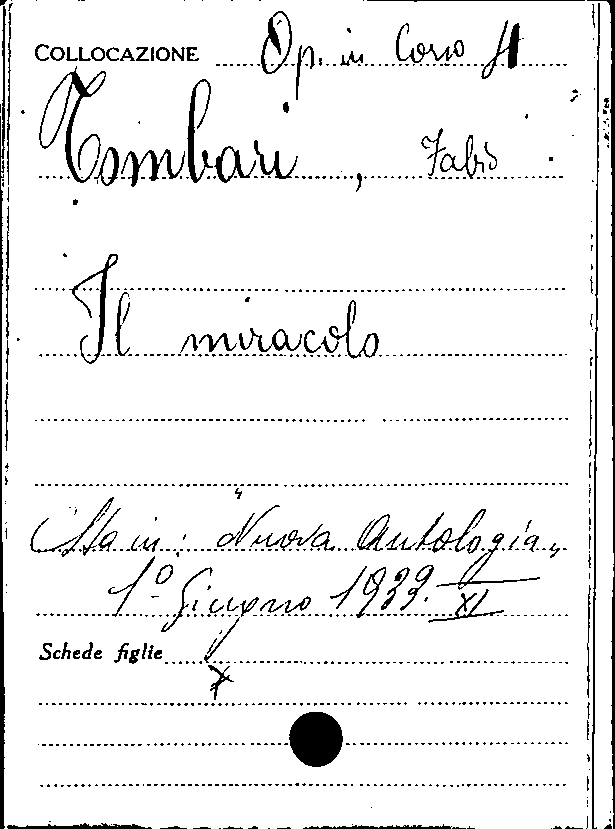 COLLOCAZIONE Op. in Corso
Tombari, Fabio
Il miracolo
Sta in: "Nuova Antologia"
1º Giugno 1933. XI
Schede figlie